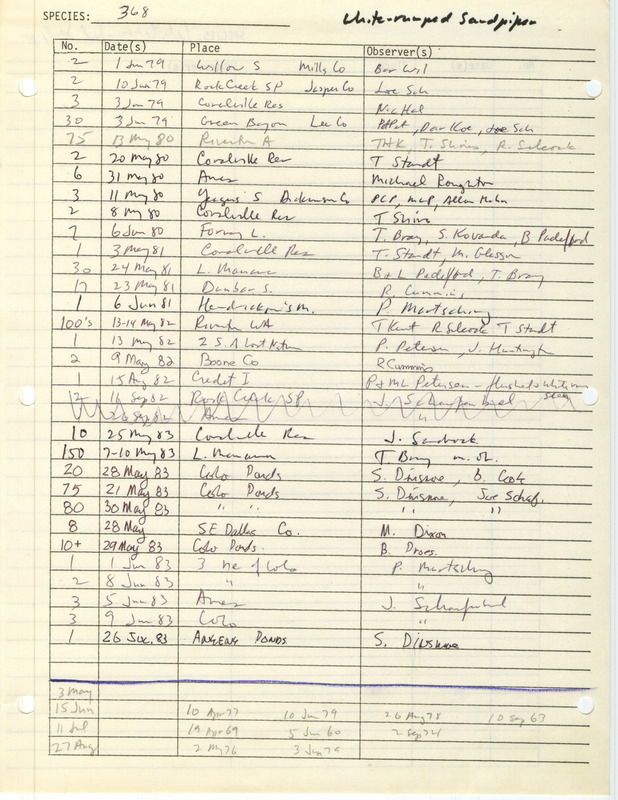 SPECIES: 368 White-rumped Sandpiper
No. Date(s) Place Observer(s)
2 1 Jun 79 Willow S Mills Co Bar Wil
2 10 Jun 79 Rock Creek SP Jasper Co Joe Sch
3 3 Jun 79 Coralville Res Nic Hal
30 3 Jun 79 Green Bayou Lee Co PetPet, DarKoe, Joe Sch
75 13 May 80 Riverton A THK, T. Shires, R. Silcock
2 20 May 80 Coralville Res T Staudt
6 31 May 80 Ames Michael Roughton
3 11 May 80 S Dickinson Co PCP, MLP,
2 8 May 80 Coralville Res T Shires
7 6 Jun 80 Forney L. T. Bray, S. Kovanda, B Padelford
1 3 May 81 Coralville Res T. Staudt, M.
30 24 May 81 L. Manawa B & L Padelford, T. Bray
17 23 May 81 Dunbar S. R. Cummins
1 6 Jun 81 Hendrickson's M. P. Martsching
100's 13-14 May 82 Riverton WA T Kent R Silcock T Staudt
1 13 May 82 2 S. Lost Nation P. Petersen, J. Huntington
2 9 May 82 Boone Co R Cummins
1 15 Aug 82 Credit I P & ML Petersen - flushed & white rump seen
12 16 Sep 82 Rock Creek SP J. Schaufenbuel
26 Sep 82 Ames "
10 25 May 83 Coralville Res J. Sandrock
150 7-10 May 83 L. Manawa T. Bray m. ob.
20 28 May 83 Colo Ponds S. Dinsmore, B. Cook
75 21 May 83 Colo Ponds S. Dinsmore, Joe Schaf.
80 30 May 83 " " " "
8 28 May SE Dallas Co. M. Dixon
10+ 29 May 83 Colo Ponds. B. Proes.
1 1 Jun 83 3 ne of Colo P. Martsching
2 8 Jun 83 " "
3 5 Jun 83 Ames J. Schaufenbuel
3 9 Jun 83 Colo "
1 26 83 Ponds S. Dinsmore
3 May
15 Jun 10 Apr 77 10 Jun 79 26 Aug 78 10 Sep 63
11 Jul 19 Apr 69 5 Jun 60 2 Sep 21
27 Aug 2 May 76 3 Jun 79